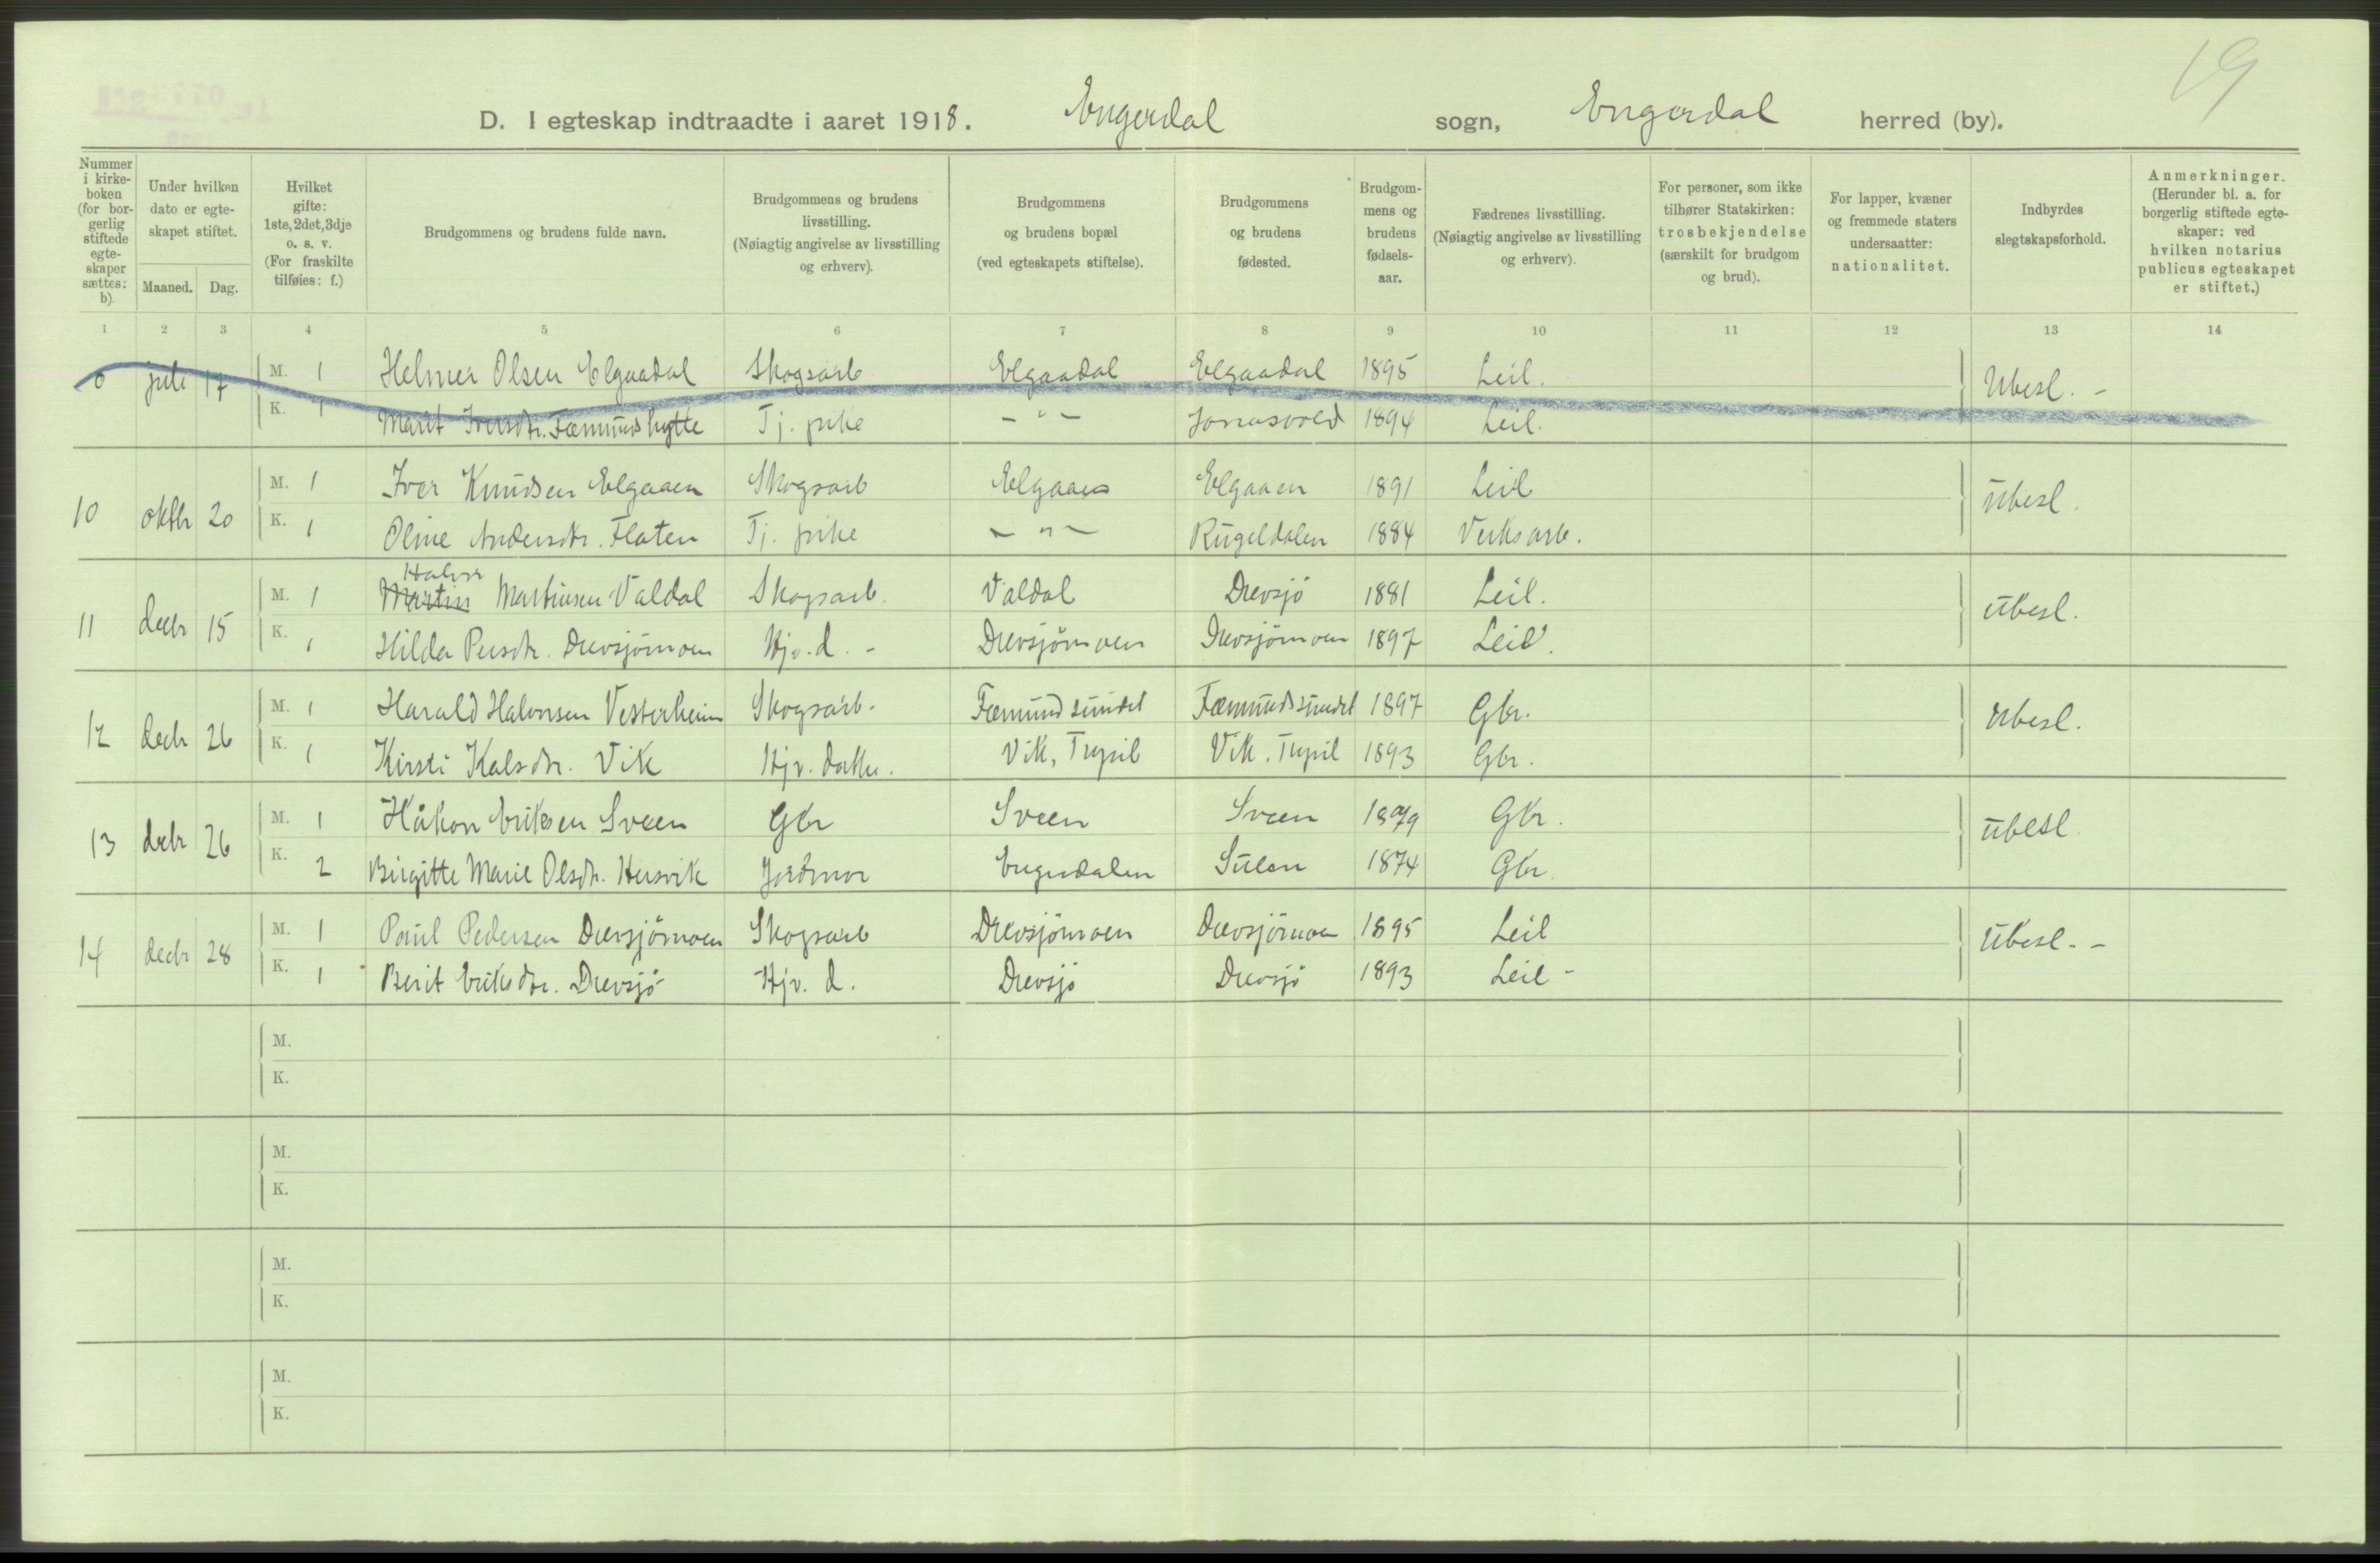 19
D. I egteskap indtraadte i aaret 1918. Engerdal sogn, Engerdal herred (by).
Nummer i kirke-boken (for bor-gerlig stiftede egte-skaper sættes: b).
Under hvilken dato er egte-skapet stiftet.
Maaned. Dag.
Hvilket gifte: 1ste, 2det, 3dje o. s. v. (For fraskilte tilføies: f.)
Brudgommens og brudens fulde navn.
Brudgommens og brudens livsstilling. (Nøiagtig angivelse av livsstilling og erhverv).
Brudgommens og brudens bopæl (ved egteskapets stiftelse).
Brudgommens og brudens fødested.
Brudgom-mens og brudens fødsels-aar.
Fædrenes livsstilling. (Nøiagtig angivelse av livsstilling og erhverv).
For personer, som ikke tilhører Statskirken: trosbekjendelse (særskilt for brudgom og brud).
For lapper, kvæner og fremmede staters undersaatter: nationalitet.
Indbyrdes slegtskapsforhold.
Anmerkninger. (Herunder bl. a. for borgerlig stiftede egte-skaper: ved hvilken notarius publicus egteskapet er stiftet.)
1 2 3 4 5 6 7 8 9 10 11 12 13 14
juli 17 M. 1 Helmer Olsen Elgaadal Skogsarb Elgaadal Elgaadal 1895 Leil. Ubesl. -
K. 1 Marit Iversdtr. Fæmundshytte Tj. pike - " - Jonasvold 1894 Leil.
10 oktbr 20 M. 1 Iver Knudsen Elgaaen Skogsarb Elgaaen Elgaaen 1891 Leil Ubesl.
K. 1 Oline Andersdtr. Flaten Tj. pike - " - Rugeldalen 1884 Verksarb.
Halvor
11 decbr 15 M. 1 Martin Martinsen Valdal Skogsarb. Valdal Drevsjö 1881 Leil. Ubesl.
K. 1 Hilda Persdtr. Drevsjömoen Hjv. d. - Drevsjömoen Drevsjömoen 1897 Leil.
12 decbr 26 M. 1 Harald Halvorsen Vesterheim Skogsarb. Fæmundsundet Fæmundsundet 1897 Gbr. Ubesl.
K. 1 Kirsti Kalsdtr. Vik Hjv. datter. Vik, Trysil Vik. Trysil 1893 Gbr.
13 decbr 26 M. 1 Håkon Eriksen Sveen Gbr Sveen Sveen 1879 Gbr. Ubesl
K. 2 Birgitte Marie Olsdtr. Hersvik Jordmor Engerdalen Sulen 1874 Gbr.
14 decbr 28 M. 1 Paul Pedersen Drevsjömoen Skogsarb Drevsjömoen Drevsjömoen 1895 Leil Ubesl. -
K. 1 Berit Eriksdtr. Drevsjö Hjv. d. Drevsjö Drevsjö 1893 Leil -
M.
K.
M.
K.
M.
K.
M.
K.